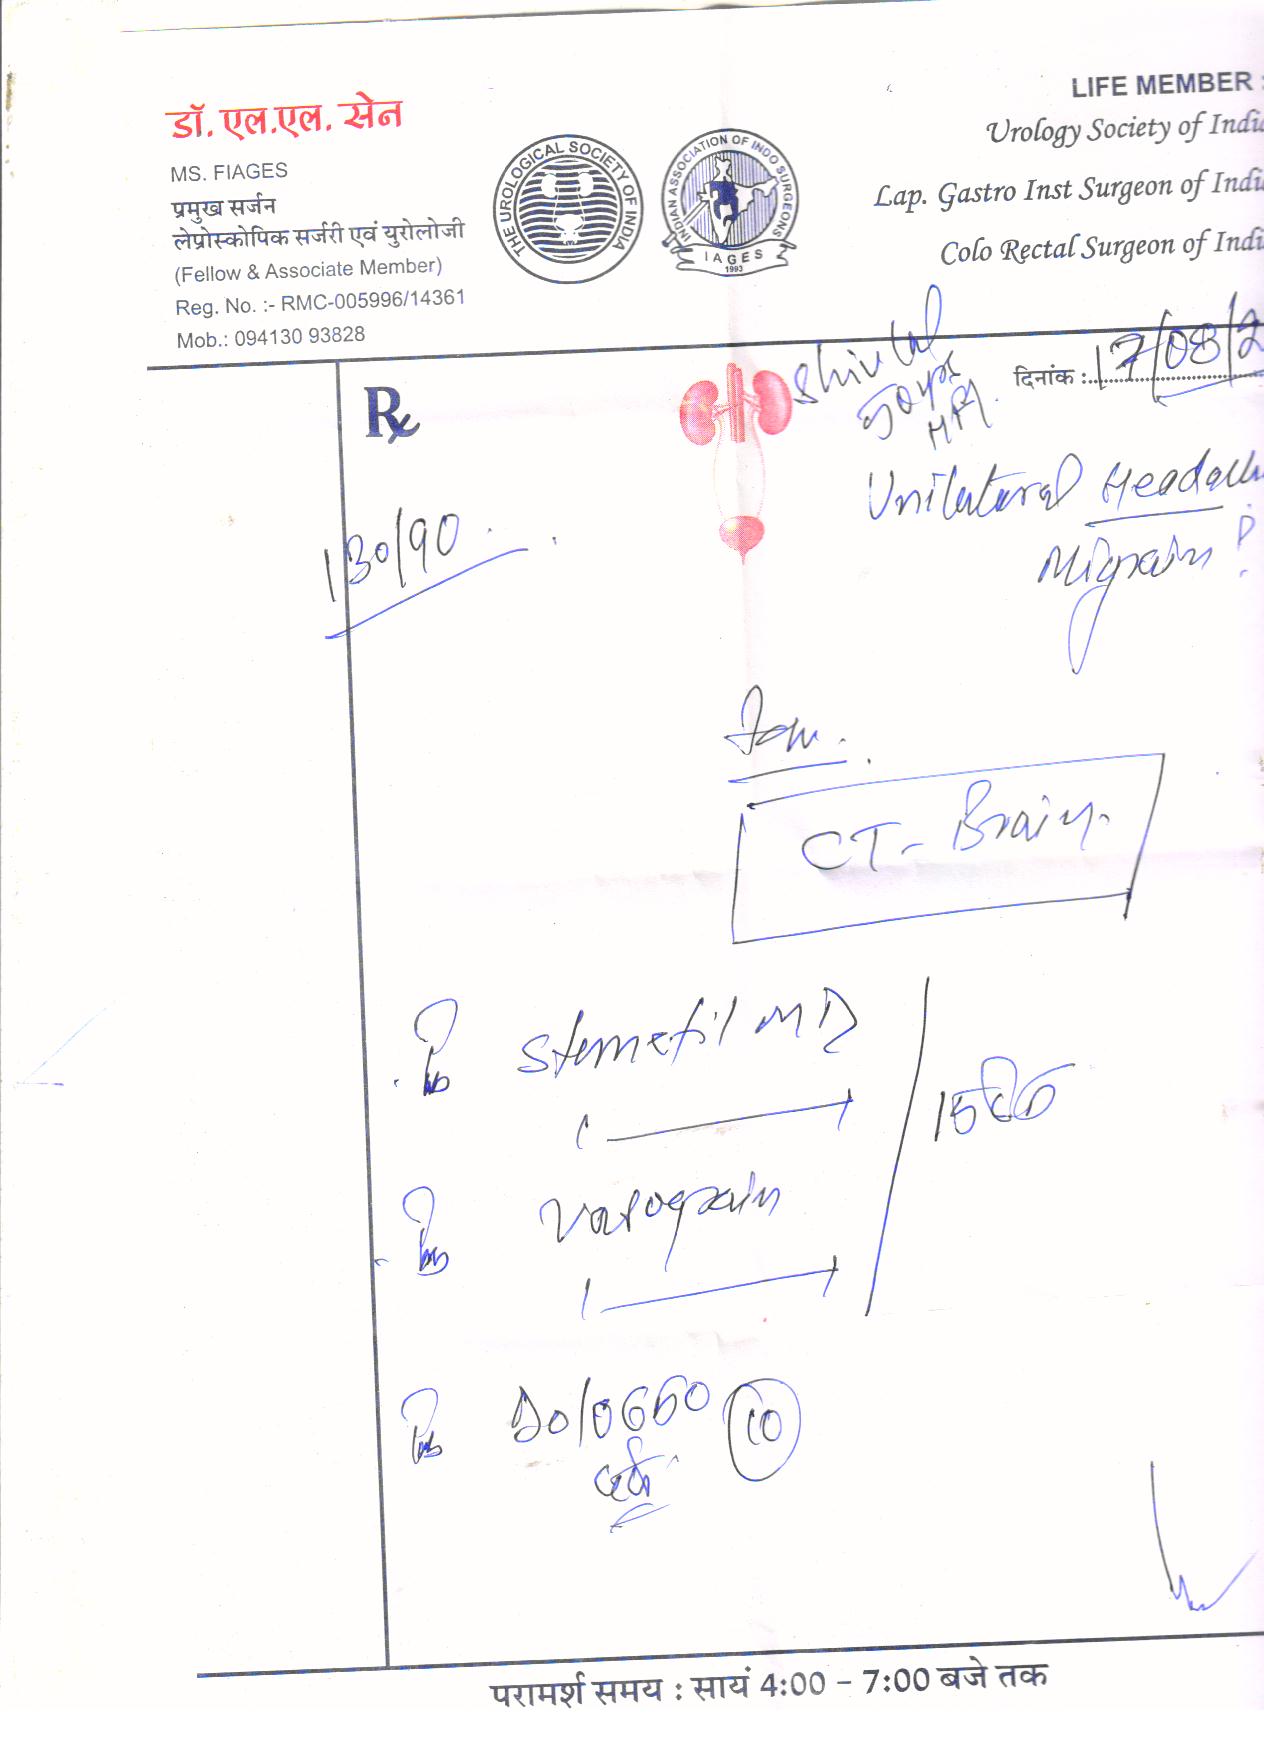 डॉ. एल.एल. सेन
MS. FIAGES
प्रमुख सर्जन
लेप्रोस्कोपिक सर्जरी एवं युरोलोजी
(Fellow & Associate Member)
Reg. No. :- RMC-005996/14361
Mob.: 094130 93828
THE UROLOGICAL SOCIETY OF INDIA
INDIAN ASSOCIATION OF INDO SURGEONS
IAGES
1993
LIFE MEMBER :
Urology Society of Indi
Lap. Gastro Inst Surgeon of Indi
Colo Rectal Surgeon of Indi
दिनांक : 17/08/2
Rx
Shivlal
130/90
Unilateral Headach
Migrain ?
CT- Brain
Stemetil MD
15 दिन
Vasograin
Dolo 650 10
दर्द
परामर्श समय : सायं 4:00 – 7:00 बजे तक